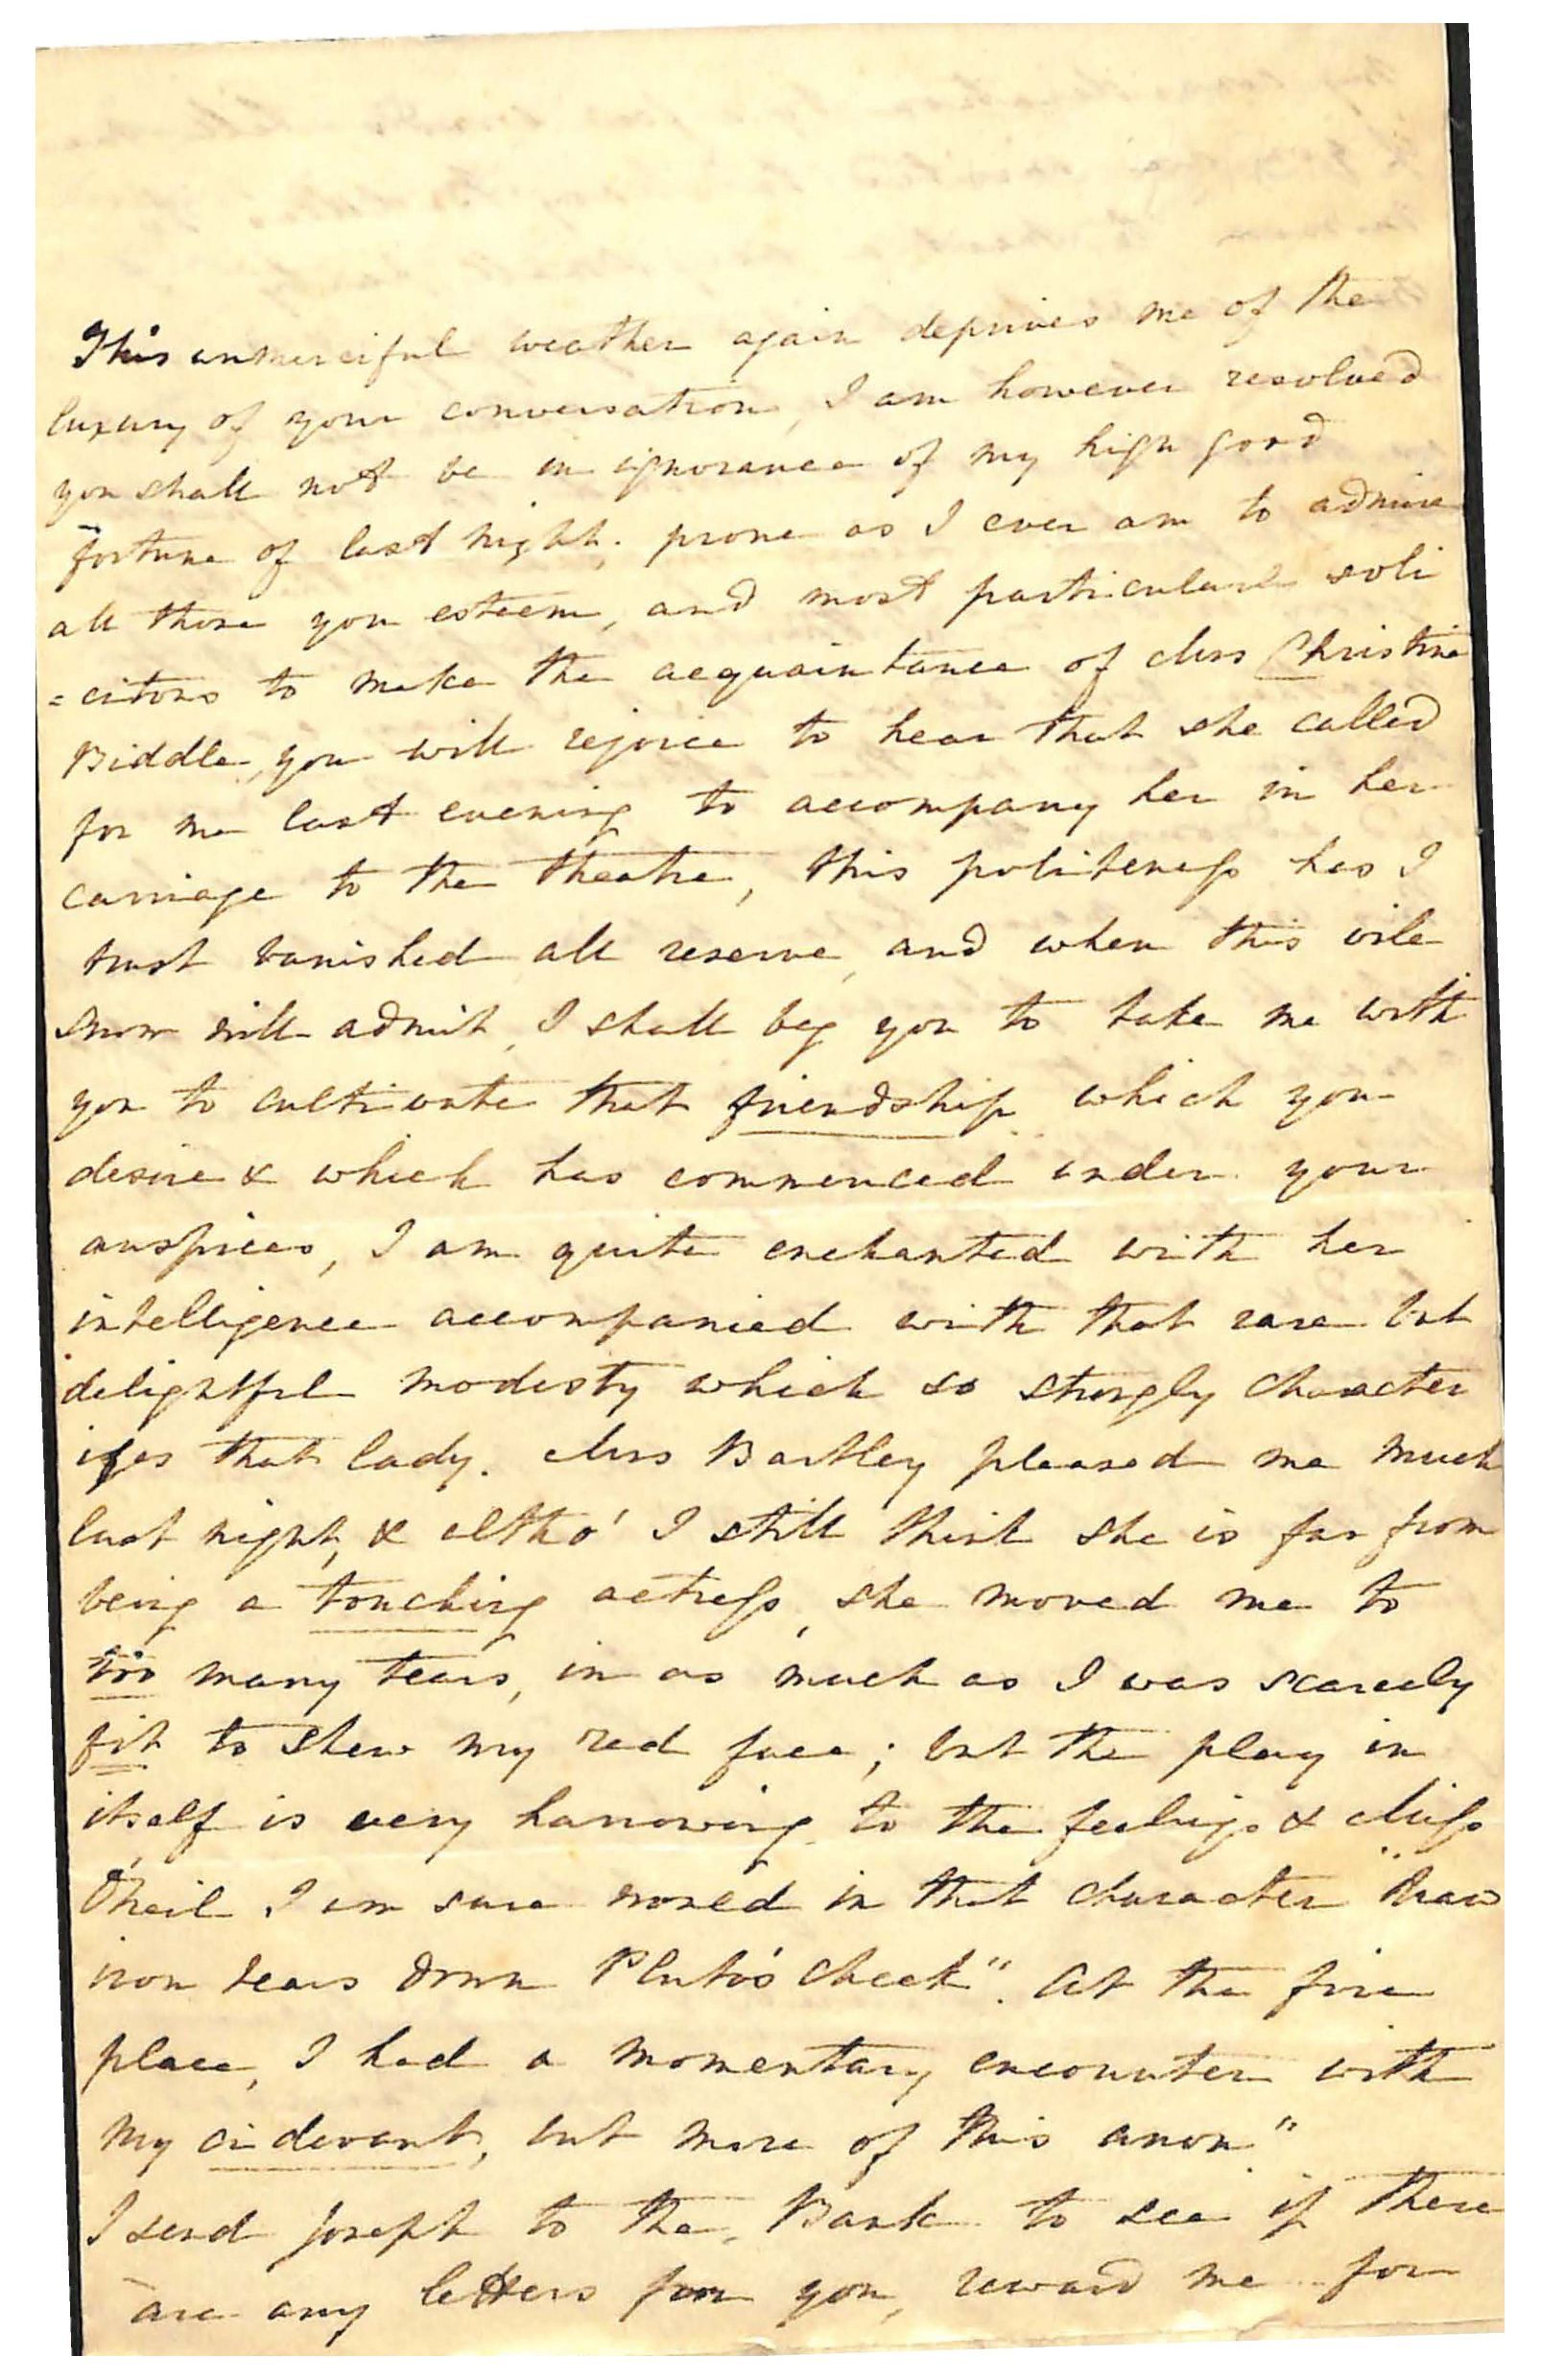 This unmerciful weather again deprives me of the
luxury of your conversation, I am however resolved
you shall not be in ignorance of my high good
fortune of last night; prone as I ever am to admire
all those you esteem, and most particularly soli
=citous to make the acquaintance of Mrs Christine
Biddle, you will rejoice to hear that she called
for me last evening to accompany her in her
carriage to the theatre, this politeness has I
trust banished all reserve, and when this vile
snow will admit, I shall beg you to take me with
you to cultivate that friendship which you
desire & which has commenced under your
auspices, I am quite enchanted with her
intelligence accompanied with that rare but
delightful modesty which so strongly character
izes that lady. Mrs Bartley pleased me much
last night, & altho' I still think she is far from
being a touching actress, she moved me to
too many tears, in as much as I was scarcely
fit to shew my red face; but the play in
itself is very harrowing to the feelings & Miss
O'neil I am sure would in that character "draw
iron tears down Pluto's cheek". At the fire
place, I had a momentary encounter with
my ci devant, but more of this anon"
I send Joseph to the Bank to see if there
are any letters for you, reward me for